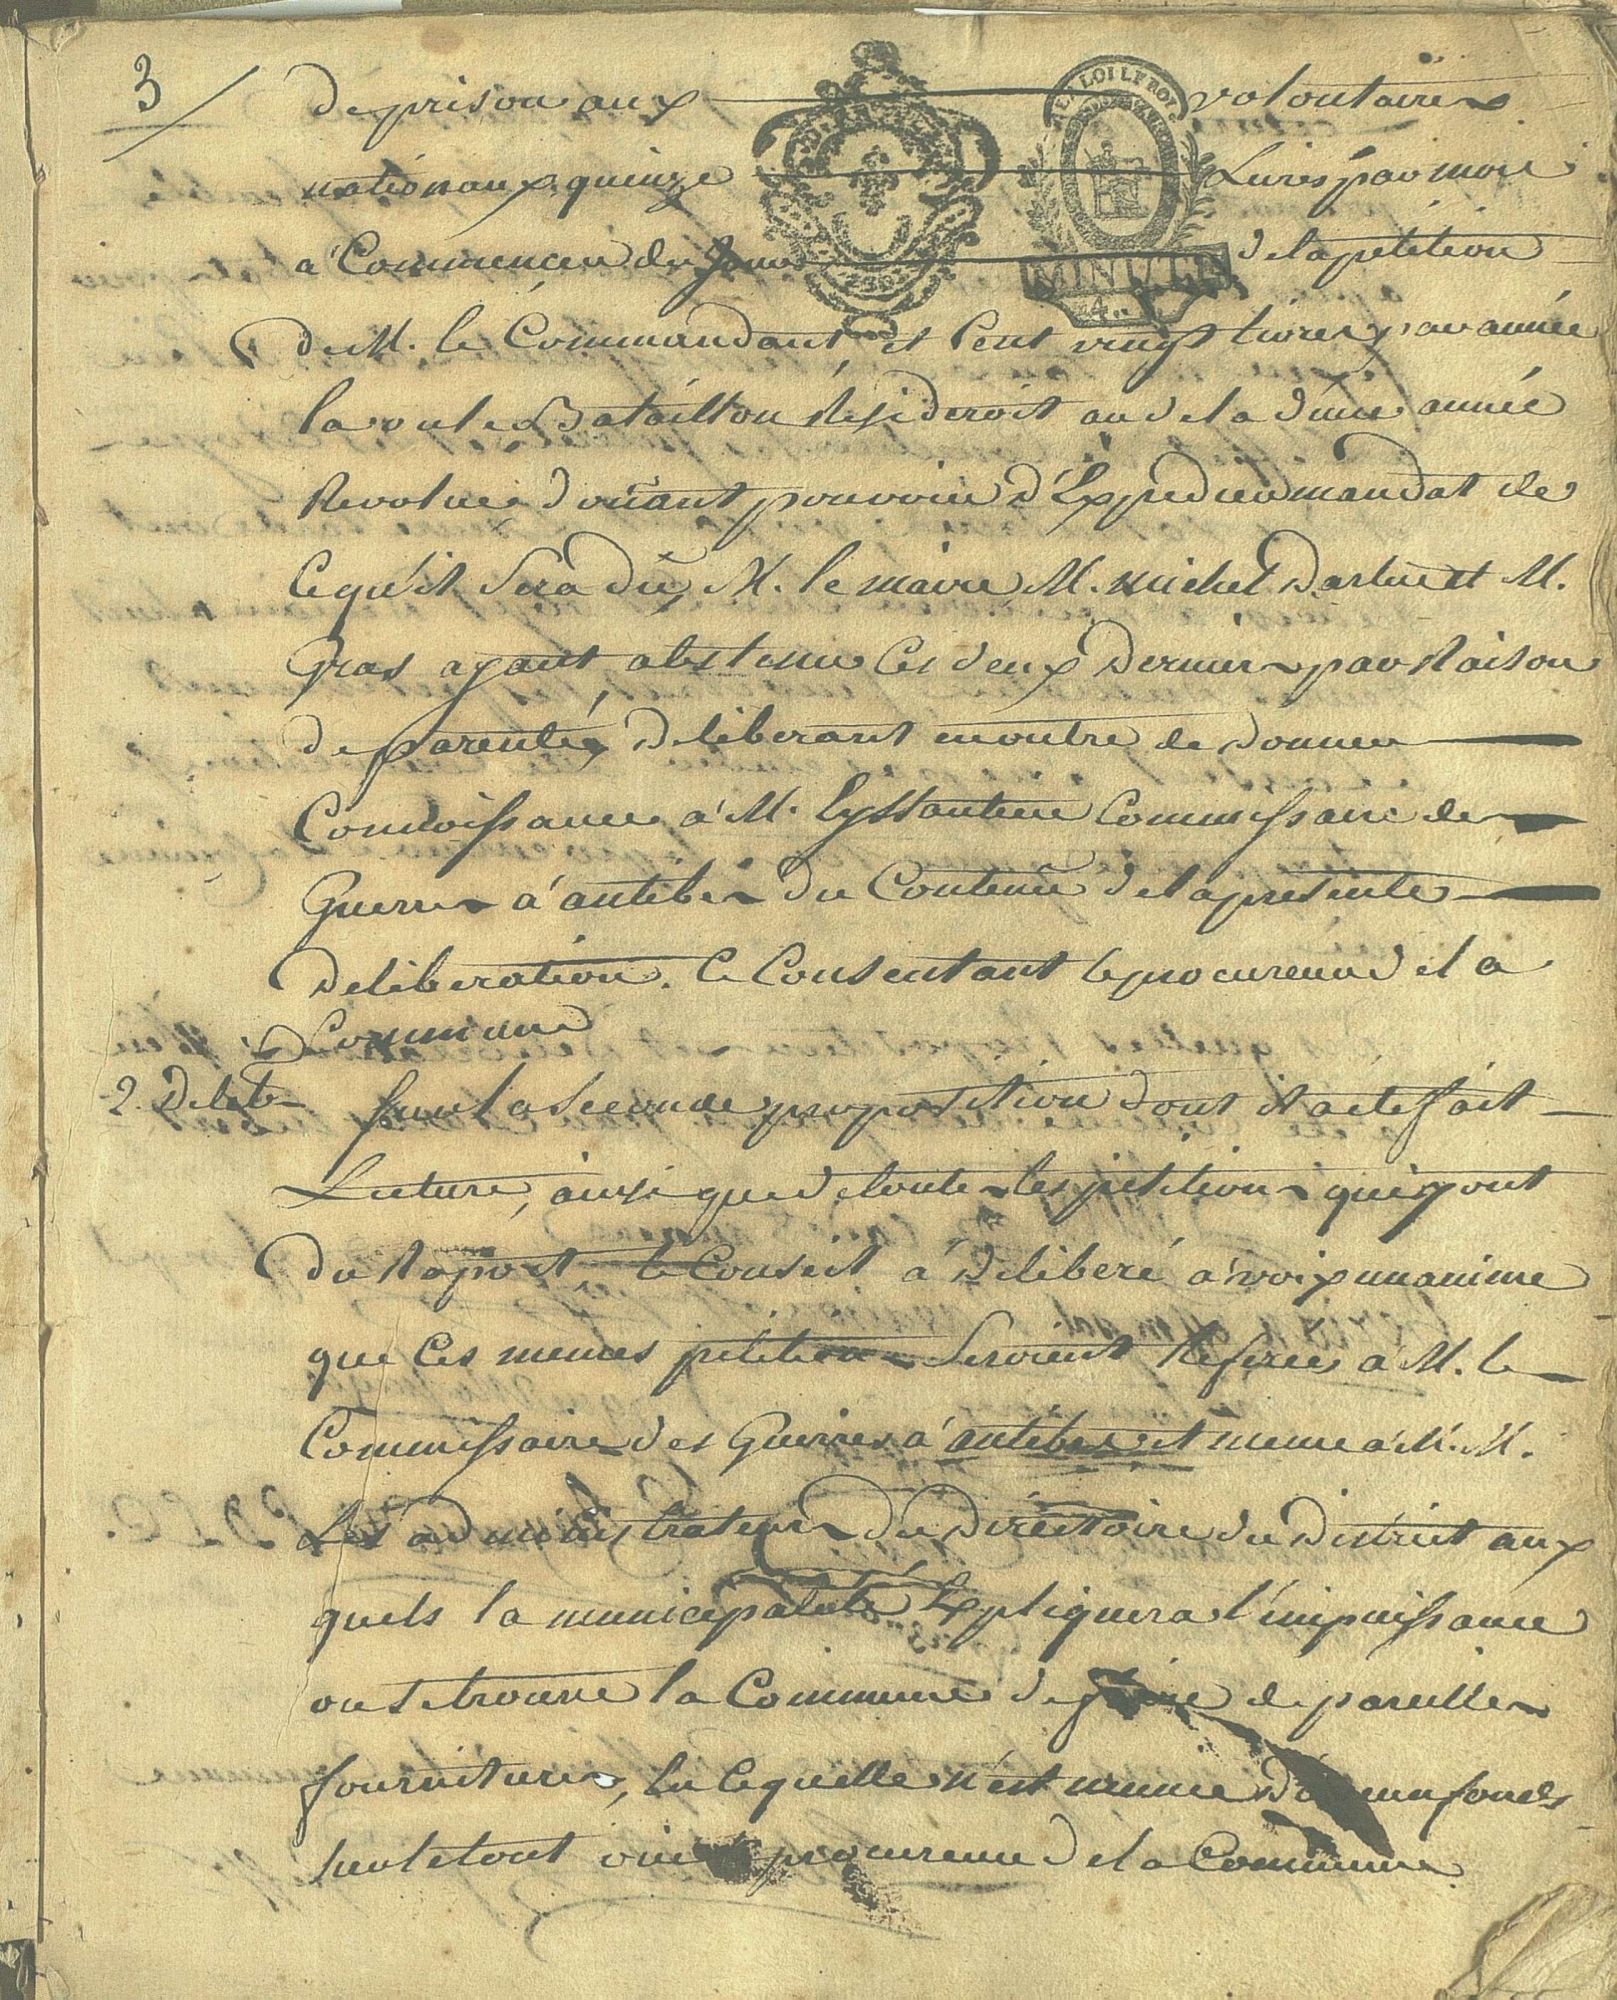 3
LA LOI LE ROI
de prison aux volontaires
nationaux, quinze Livres par mois
à Commencer du Jour de la pétition
MINUTE
4.
de M. le Commandant, et Cent vingt livres par année
la ou le Bataillon Resideroit au dela d'une année
Revolue donant pouvoir d'Expedier mandat de
Ce qu'il Sera dû, M. le maire M. michel Darluc et M.
Gras ayant abstenu Ces deux Derniers par Raison
de parenté, Deliberant en outre de Donner
Connoissance à M. Eyssautier Commissaire de
Guerres à antibes du Contenu de la presente
Deliberation. Ce Consentant le procureur de la
Commune
2. Delib.
Sur la Seconde proposition dont il a été fait
Lecture, ainsi que de toutes les pétitions qui y ont
du Raport, le Conseil à Déliberé à voix unanime
que Ces memes pétitions Seroient Referées à M. le
Commissaire des Guerres à antibes et meme à M. M.
Les administrateurs du Directoire du District aux
quels la municipalité Expliquera l'impuissance
ou se trouve la Commune de faire de pareilles
fournitures, la quelle n'est munie D'aucun fonds
sur le tout oui le procureur de la Commune